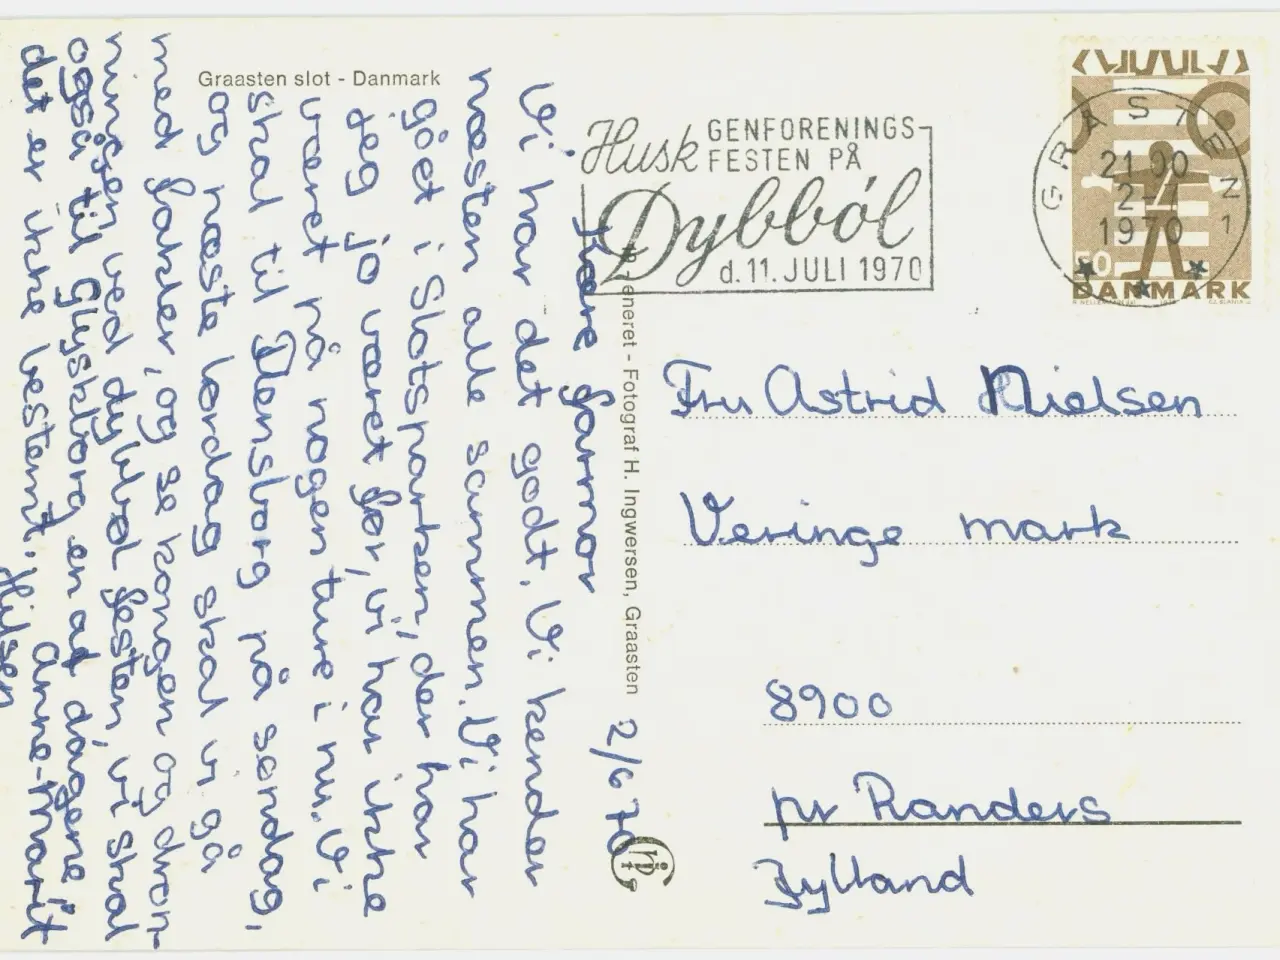 Graasten slot - Danmark
2/6 70
Kære Farmor
Vi har det godt. Vi kender
næsten alle sammen. Vi har
gået i Slotsparken, der har
jeg jo været før, vi har ikke
været på nogen ture i nu. Vi
skal til Flensborg på søndag,
og næste lørdag skal vi gå
med fakler, og se kongen og dron-
ningen ved dybbøl festen, vi skal
også til Glysborg en af dagene,
det er ikke bestemt.
Hilsen
Anne-Marit
eneret - Fotograf H. Ingwersen, Graasten
Husk GENFORENINGS-
FESTEN PÅ
Dybbøl
d. 11. JULI 1970
GRÅSTEN 1
21 00
2-7
1970
50
DANMARK
Fru Astrid Nielsen
Veringe mark
8900
pr Randers
Jylland